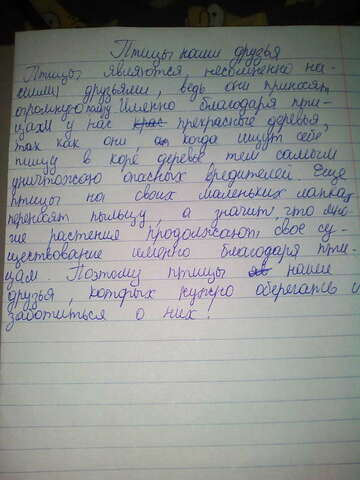 Птицы наши друзья
Птицы являются, несомненно на-
шими друзьями, ведь они приносят
огромную пищу Именно благодаря пти-
цам у нас крас прекрасные деревья,
так как они, когда ищут себе
пищу в коре деревье, тем самым
уничтожаю опасных вредителей. Еще
птицы на своих маленьких лапках
переносят пыльцу, а значит, что мно-
гие растения продолжают свое су-
ществование именно благодаря пти-
цам. Поэтому птицы наши
друзья, которых нужно оберегать и
заботиться о них!